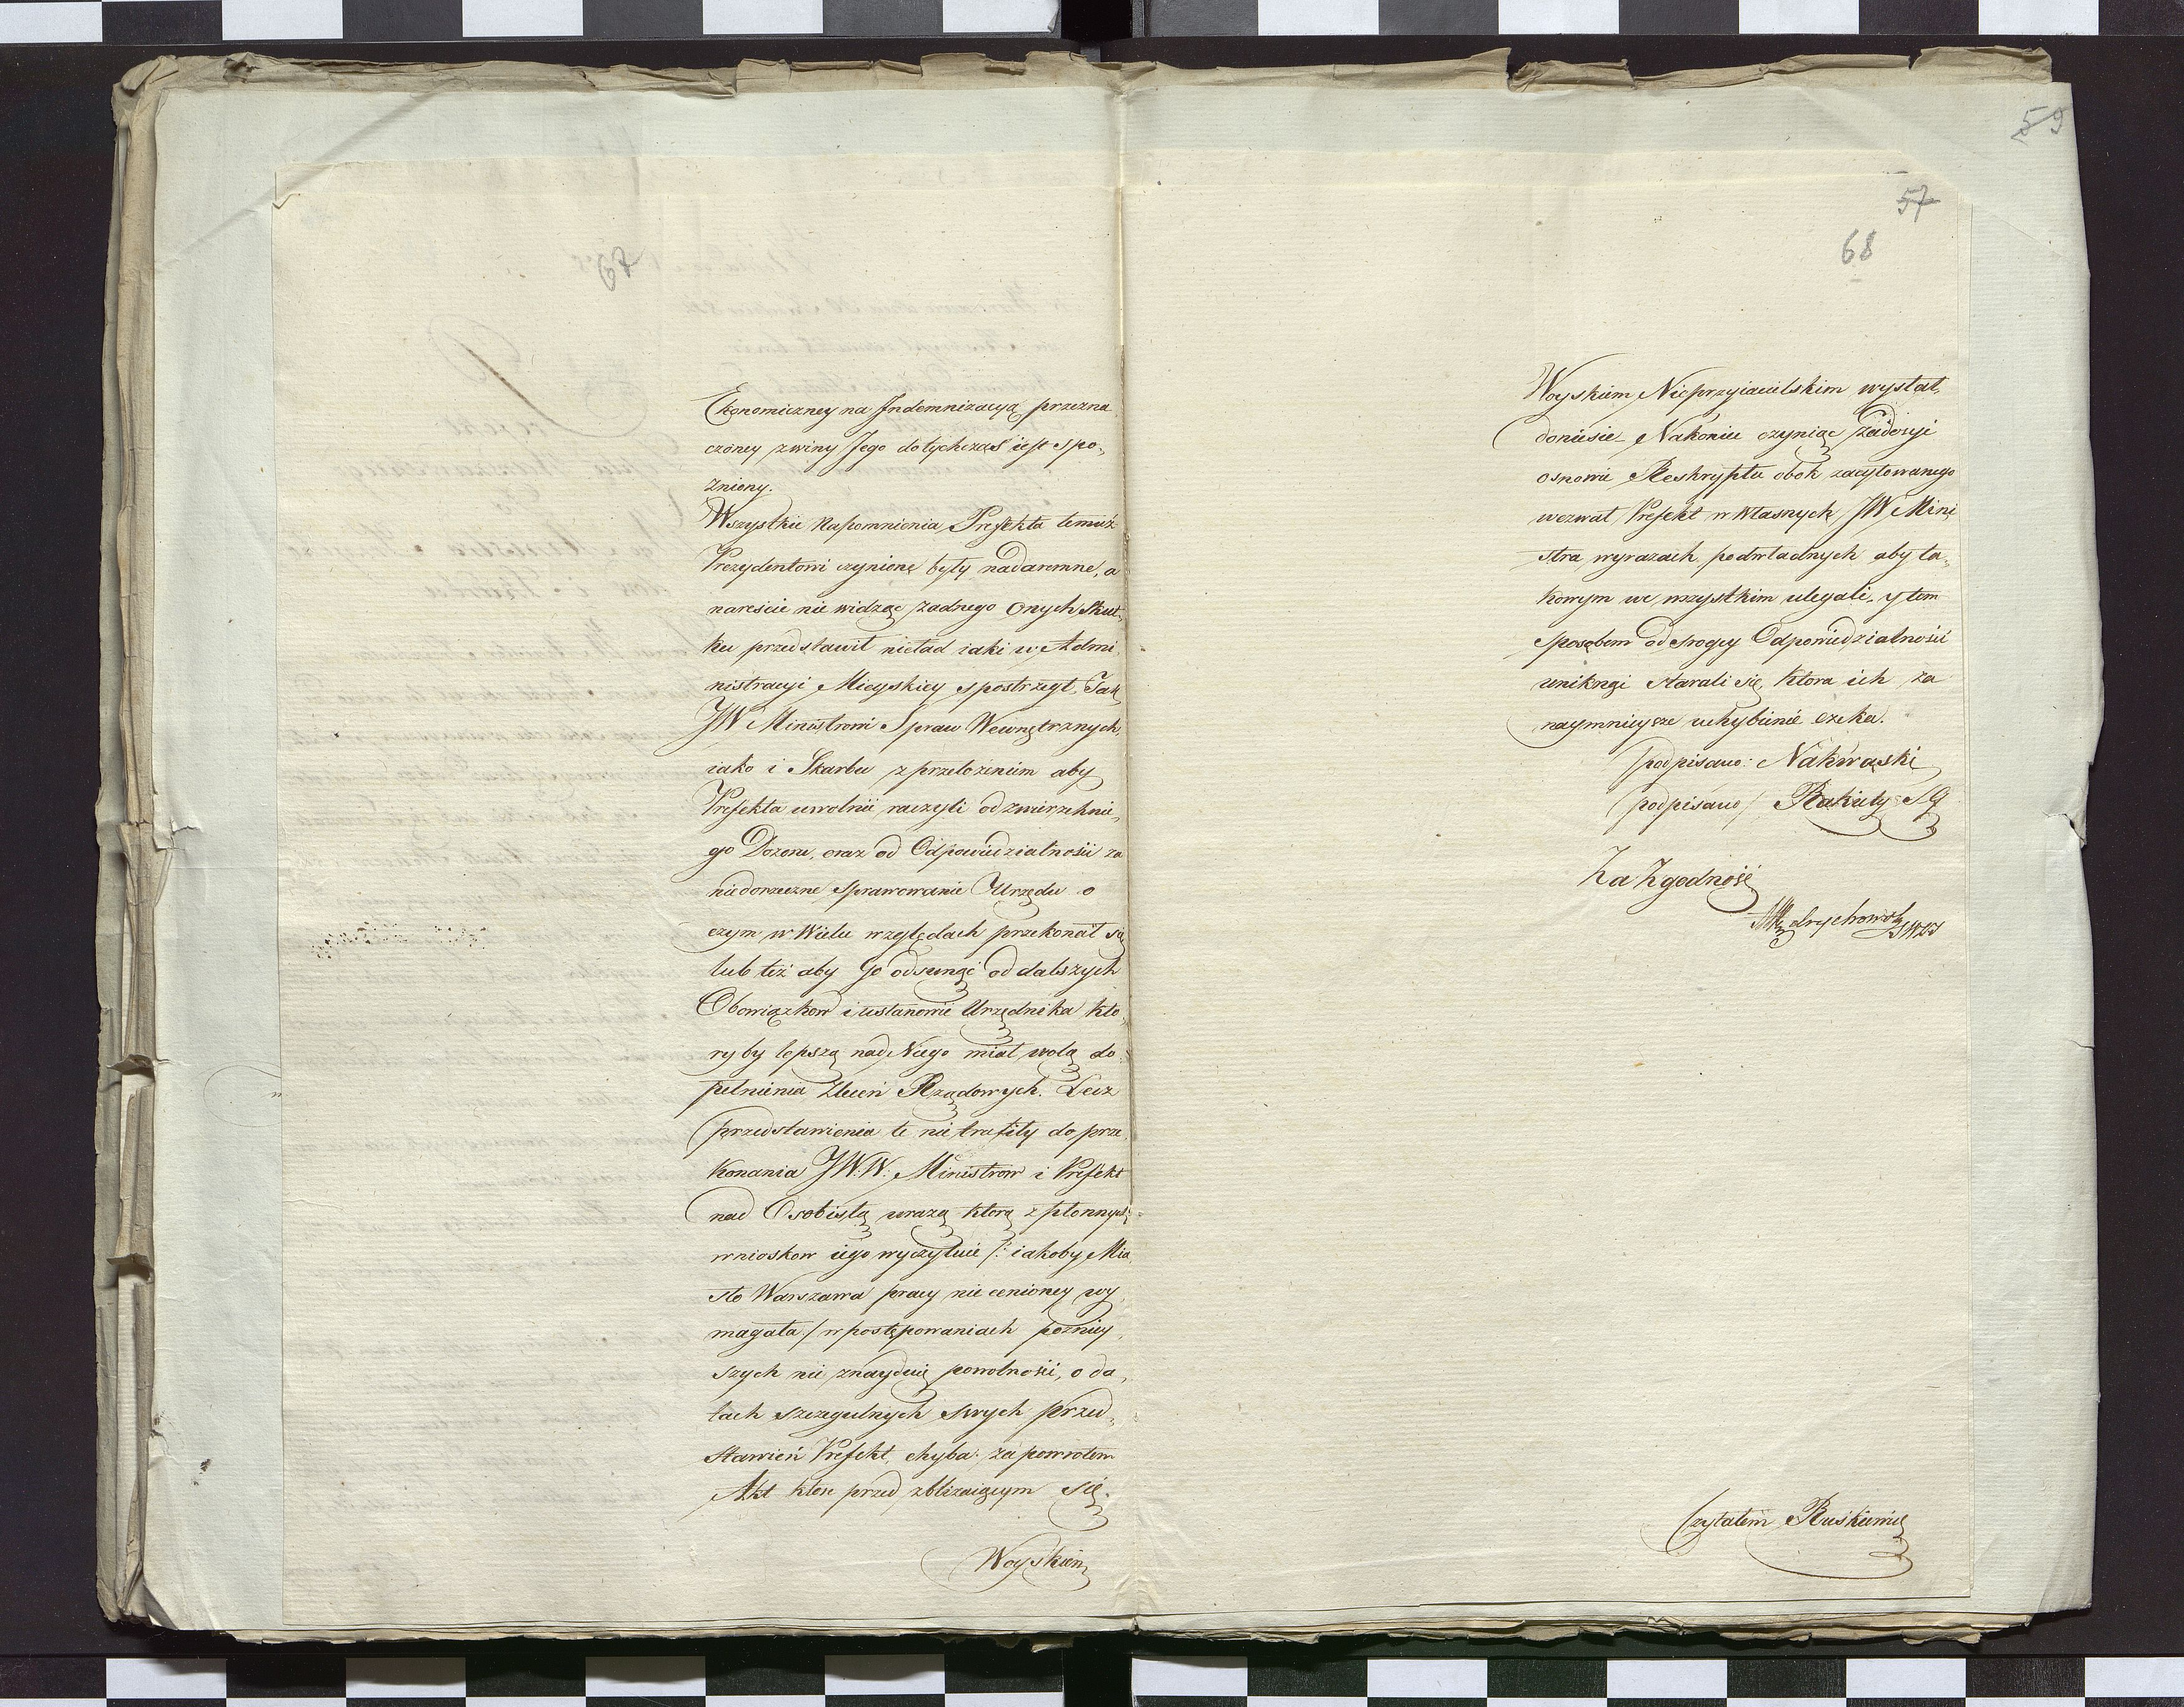 67
Ekonomiczney na Indemnizacyą przezna
czoney z winy Jego dotychczas iest spo„
zniony.
Wszystkie Napomnienia Prefekta temuż
Prezydentowi czynione były nadaremne, a
nareście nie widząc żadnego onych skut„
ku przedstawił nieład iaki w Admi„
nistracyi Mieyskiey spostrzegł, Tak
JW Ministrowi Spraw Wewnętrznych,
iako i Skarbu z przełożeniem aby
Prefekta uwolnić raczyli od zwierzchnie„
go Dozoru, oraz od Odpowiedzialności za
niedorzeczne sprawowanie Urzędu o
czym w Wielu względach przekonał się
lub też aby Go odsunąć od dalszych
Obowiązkow i ustanowić Urzędnika kto„
ryby lepszą nad Niego miał wolą do„
pełnienia Zleceń Rządowych. Lecz
przedstawienia te nie trafiły do prze„
konania JW.W. Ministrow i Prefekt
nad Osobistą urazą ktorą z płonnych
wnioskow iego wyczytuie /: iakoby Mia„
sto Warszawa pracy nie cenioney wy„
magała / w postępowaniach poźniey„
szych nie znayduie powolności, o da„
tach szczegulnych swych przed„
stawień Prefekt, chyba za powrotem
Akt ktore przed zbliżaiącym się
Woyskiem
59
57
68
Woyskiem Nieprzyiacielskim wysłał,
doniesie. Nakoniec czyniąc zadosyć
osnowie Reskryptu obok zacytowanego
wezwał Prefekt w Własnych JW Mini
stra wyrazach podwładnych aby ta„
kowym we wszystkim ulegali, y tem
sposobem od srogiey Odpowiedzialności
uniknąć starali się, ktora ich za
naymnieysze uchybienie czeka.
podpisano: Nakwaski
podpisano / Rakiety SG
Za Zgodność
Czytałem Ruśkiewicz